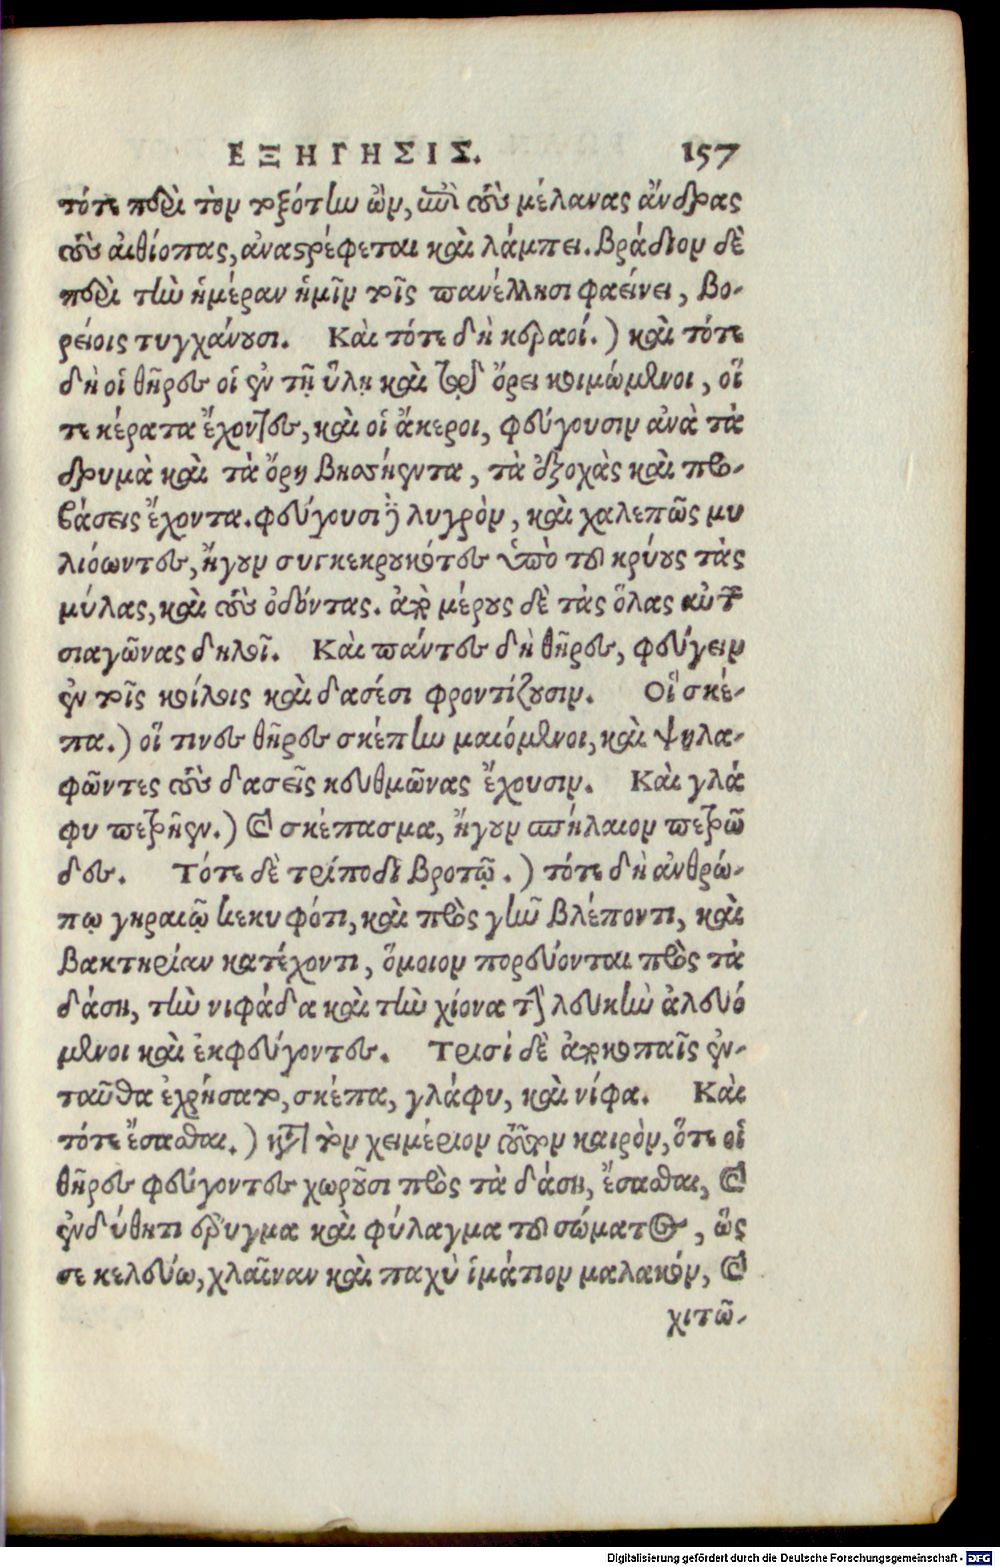 ΕΞΗΓΗΣΙΣ. 157
τότε περὶ τὸν τοξότην ὢν, ἐπὶ τοὺς μέλανας ἄνδρας
τοὺς αἰθίοπας, ἀναστρέφεται καὶ λάμπει. Βράδιον δὲ
περὶ τὴν ἡμέραν ἡμῖν τοῖς πανέλλησι φαείνει, βο-
ρείοις τυγχάνουσι. Καὶ τότε δὴ κεραοί.) καὶ τότε
δὴ οἱ θῆρες οἱ ἐν τῇ ὕλῃ καὶ τῷ ὄρει κοιμώμενοι, οἵ
τε κέρατα ἔχοντες, καὶ οἱ ἄκεροι, φεύγουσιν ἀνὰ τὰ
δρυμὰ καὶ τὰ ὄρη βησσήεντα, τὰ ἐξοχὰς καὶ προ-
βάσεις ἔχοντα. φεύγουσι δὲ λυγρὸν, καὶ χαλεπῶς μυ
λιόωντες, ἤγουν συγκεκρουκότες ὑπὸ τοῦ κρύους τὰς
μύλας, καὶ τοὺς ὀδόντας. ἀπὸ μέρους δὲ τὰς ὅλας αὐτῶν
σιαγῶνας δηλοῖ. Καὶ πάντες δὴ θῆρες, φεύγειν
ἐν τοῖς κοίλοις καὶ δασέσι φροντίζουσιν. Οἳ σκέ-
πα.) οἵ τινες θῆρες σκέπην μαιόμενοι, καὶ ψηλα-
φῶντες τοὺς δασεῖς κευθμῶνας ἔχουσιν. Καὶ γλά
φυ πετρῆεν.) καὶ σκέπασμα, ἤγουν σπήλαιον πετρῶ
δες. Τότε δὲ τρίποδι βροτῷ.) τότε δὴ ἀνθρώ-
πῳ γηραιῷ κεκυφότι, καὶ πρὸς γῆν βλέποντι, καὶ
βακτηρίαν κατέχοντι, ὅμοιον πορεύονται πρὸς τὰ
δάση, τὴν νιφάδα καὶ τὴν χίονα τὴν λευκὴν ἀλευό
μενοι καὶ ἐκφεύγοντες. Τρισὶ δὲ ἀποκοπαῖς ἐν-
ταῦθα ἐχρήσατο, σκέπα, γλάφυ, καὶ νίφα. Καὶ
τότε ἕσασθαι.) κατὰ τὸν χειμέριον τοῦτον καιρὸν, ὅτε οἱ
θῆρες φεύγοντες χωροῦσι πρὸς τὰ δάση, ἕσασθαι, καὶ
ἐνδύθητι ἔρυγμα καὶ φύλαγμα τοῦ σώματος, ὥς
σε κελεύω, χλαῖναν καὶ παχὺ ἱμάτιον μαλακόν, καὶ
χιτῶ-
Digitalisierung gefördert durch die Deutsche Forschungsgemeinschaft - DFG